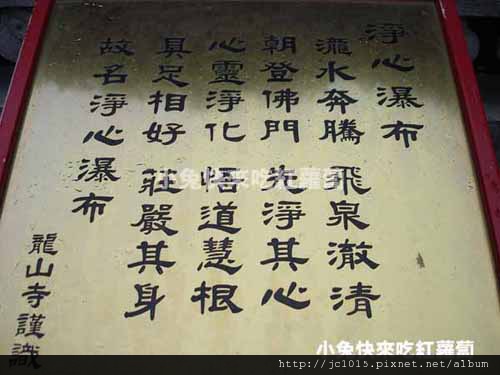 淨心瀑布
瀧水奔騰 飛泉澈清
朝登佛門 先淨其心
心靈淨化 悟道慧根
具足相好 莊嚴其身
故名淨心瀑布
龍山寺謹識
小兔快來吃紅蘿蔔
小兔快來吃紅蘿蔔
http://jc1015.pixnet.net/album